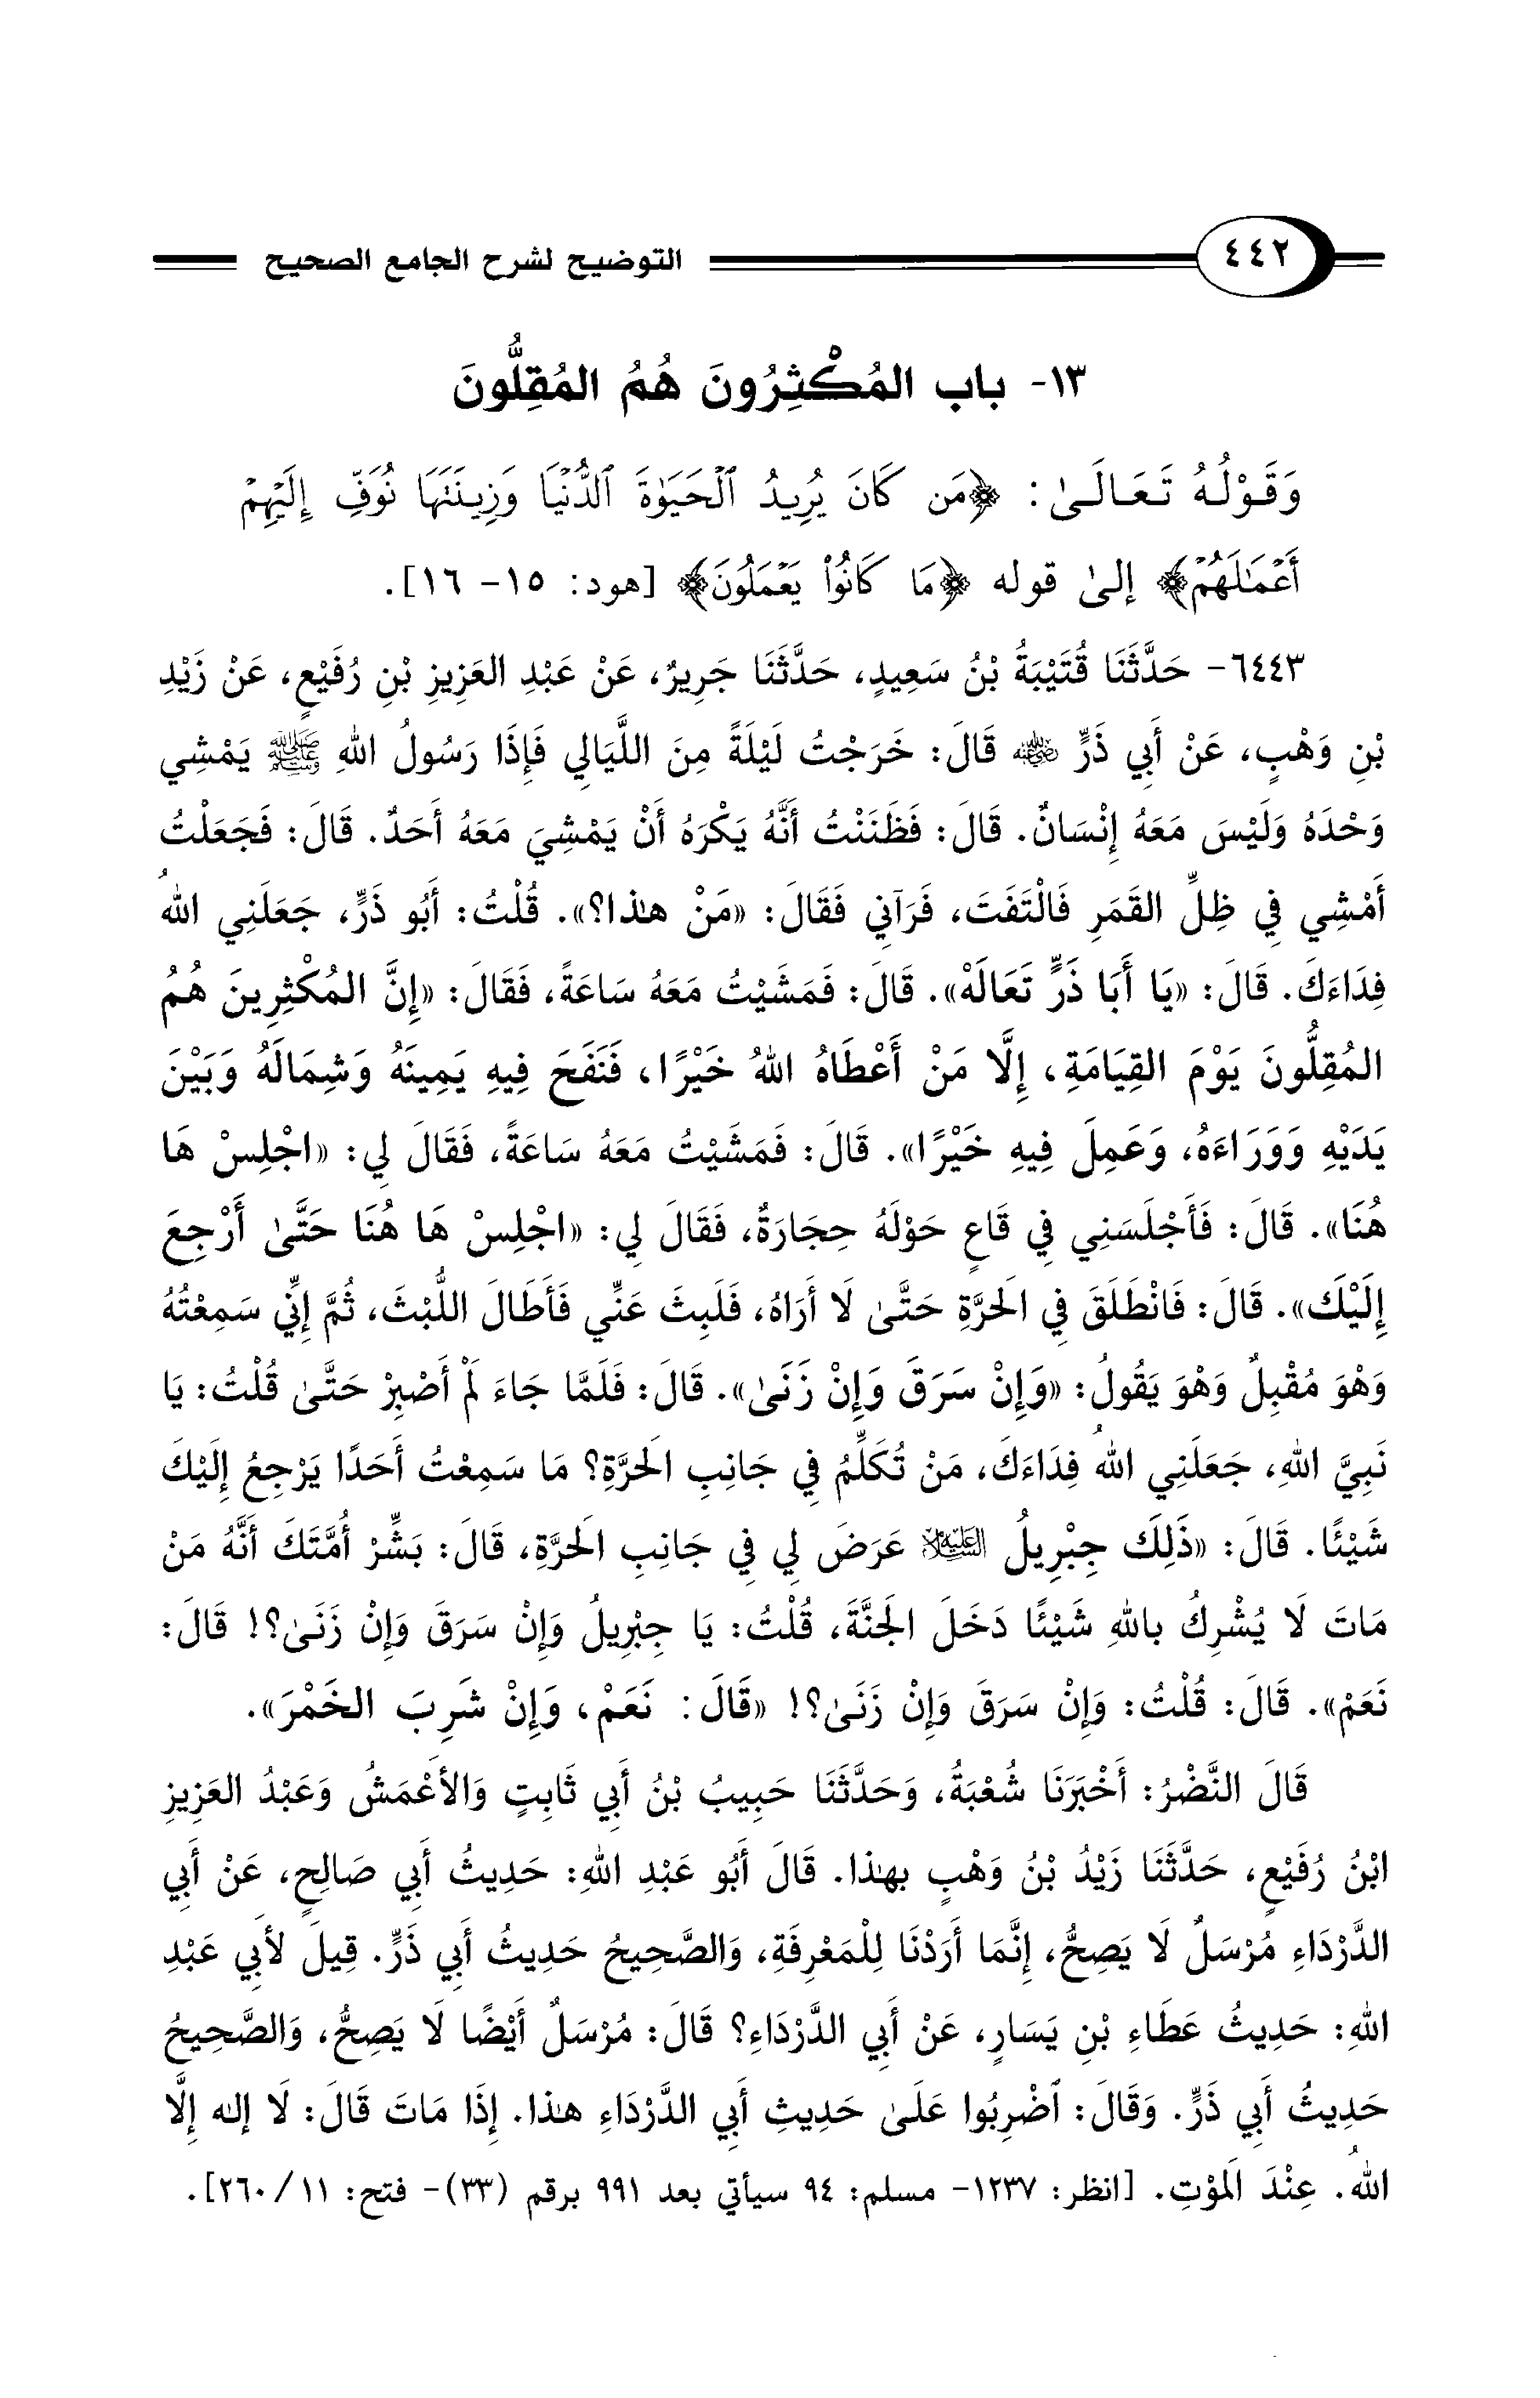 ٤٤٢
التوضيح لشرح الجامع الصحيح
١٣- باب المُكْثِرُونَ هُمُ المُقِلُّونَ
وَقَوْلُهُ تَعَالَىٰ: ﴿مَن كَانَ يُرِيدُ ٱلْحَيَوٰةَ ٱلدُّنْيَا وَزِينَتَهَا نُوَفِّ إِلَيْهِمْ
أَعْمَـٰلَهُمْ﴾ إلىٰ قوله ﴿مَا كَانُوا۟ يَعْمَلُونَ﴾ [هود: ١٥- ١٦].
٦٤٤٣- حَدَّثَنَا قُتَيْبَةُ بْنُ سَعِيدٍ، حَدَّثَنَا جَرِيرٌ، عَنْ عَبْدِ العَزِيزِ بْنِ رُفَيْعٍ، عَنْ زَيْدِ
بْنِ وَهْبٍ، عَنْ أَبِي ذَرٍّ ﵁ قَالَ: خَرَجْتُ لَيْلَةً مِنَ اللَّيَالِي فَإِذَا رَسُولُ اللهِ ﷺ يَمْشِي
وَحْدَهُ وَلَيْسَ مَعَهُ إِنْسَانٌ. قَالَ: فَظَنَنْتُ أَنَّهُ يَكْرَهُ أَنْ يَمْشِيَ مَعَهُ أَحَدٌ. قَالَ: فَجَعَلْتُ
أَمْشِي فِي ظِلِّ القَمَرِ فَالْتَفَتَ، فَرَآنِي فَقَالَ: «مَنْ هٰذا؟». قُلْتُ: أَبُو ذَرٍّ، جَعَلَنِي اللهُ
فِدَاءَكَ. قَالَ: «يَا أَبَا ذَرٍّ تَعَالَهْ». قَالَ: فَمَشَيْتُ مَعَهُ سَاعَةً، فَقَالَ: «إِنَّ المُكْثِرِينَ هُمُ
المُقِلُّونَ يَوْمَ القِيَامَةِ، إِلَّا مَنْ أَعْطَاهُ اللهُ خَيْرًا، فَنَفَحَ فِيهِ يَمِينَهُ وَشِمَالَهُ وَبَيْنَ
يَدَيْهِ وَوَرَاءَهُ، وَعَمِلَ فِيهِ خَيْرًا». قَالَ: فَمَشَيْتُ مَعَهُ سَاعَةً، فَقَالَ لِي: «اجْلِسْ هَا
هُنَا». قَالَ: فَأَجْلَسَنِي فِي قَاعٍ حَوْلَهُ حِجَارَةٌ، فَقَالَ لِي: «اجْلِسْ هَا هُنَا حَتَّىٰ أَرْجِعَ
إِلَيْكَ». قَالَ: فَانْطَلَقَ فِي الَحرَّةِ حَتَّىٰ لَا أَرَاهُ، فَلَبِثَ عَنِّي فَأَطَالَ اللُّبْثَ، ثُمَّ إِنِّي سَمِعْتُهُ
وَهْوَ مُقْبِلٌ وَهْوَ يَقُولُ: «وَإِنْ سَرَقَ وَإِنْ زَنَىٰ». قَالَ: فَلَمَّا جَاءَ لَمْ أَصْبِرْ حَتَّىٰ قُلْتُ: يَا
نَبِيَّ اللهِ، جَعَلَنِي اللهُ فِدَاءَكَ، مَنْ تُكَلِّمُ فِي جَانِبِ الَحرَّةِ؟ مَا سَمِعْتُ أَحَدًا يَرْجِعُ إِلَيْكَ
شَيْئًا. قَالَ: «ذَلِكَ جِبْرِيلُ ﵇ عَرَضَ لِي فِي جَانِبِ الَحرَّةِ، قَالَ: بَشِّرْ أُمَّتَكَ أَنَّهُ مَنْ
مَاتَ لَا يُشْرِكُ بالله شَيْئًا دَخَلَ الَجنَّةَ، قُلْتُ: يَا جِبْرِيلُ وَإِنْ سَرَقَ وَإِنْ زَنَىٰ؟! قَالَ:
نَعَمْ». قَالَ: قُلْتُ: وَإِنْ سَرَقَ وَإِنْ زَنَىٰ؟! «قَالَ: نَعَمْ، وَإِنْ شَرِبَ الخَمْرَ».
قَالَ النَّضْرُ: أَخْبَرَنَا شُعْبَةُ، وَحَدَّثَنَا حَبِيبُ بْنُ أَبِي ثَابِتٍ وَالأَعْمَشُ وَعَبْدُ العَزِيزِ
ابْنُ رُفَيْعٍ، حَدَّثَنَا زَيْدُ بْنُ وَهْبٍ بهٰذا. قَالَ أَبُو عَبْدِ اللهِ: حَدِيثُ أَبِي صَالِحٍ، عَنْ أَبِي
الدَّرْدَاءِ مُرْسَلٌ لَا يَصِحُّ، إِنَّمَا أَرَدْنَا لِلْمَعْرِفَةِ، وَالصَّحِيحُ حَدِيثُ أَبِي ذَرٍّ. قِيلَ لأَبِي عَبْدِ
اللهِ: حَدِيثُ عَطَاءِ بْنِ يَسَارٍ، عَنْ أَبِي الدَّرْدَاءِ؟ قَالَ: مُرْسَلٌ أَيْضًا لَا يَصِحُّ، وَالصَّحِيحُ
حَدِيثُ أَبِي ذَرٍّ. وَقَالَ: ٱضْرِبُوا عَلَىٰ حَدِيثِ أَبِي الدَّرْدَاءِ هٰذا. إِذَا مَاتَ قَالَ: لَا إله إِلَّا
اللهُ. عِنْدَ الَموْتِ. [انظر: ١٢٣٧- مسلم: ٩٤ سيأتي بعد ٩٩١ برقم (٣٣)- فتح: ١١/ ٢٦٠].